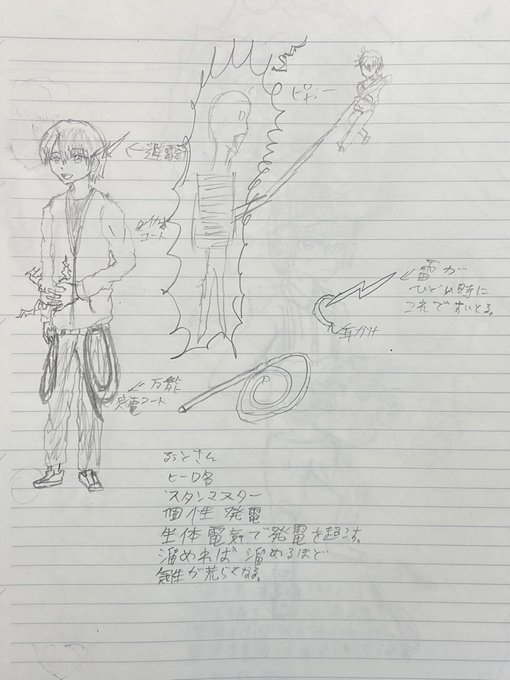 ピャー
←避雷針
コート
←雷が
ひどい時に
これですいとる。
耳かけ
←万能
充電コート
おとさん
ヒーロー名
スタンマスター
個性 発電
生体電気で発電を起こす。
溜めれば溜めるほど
気性が荒らくなる。